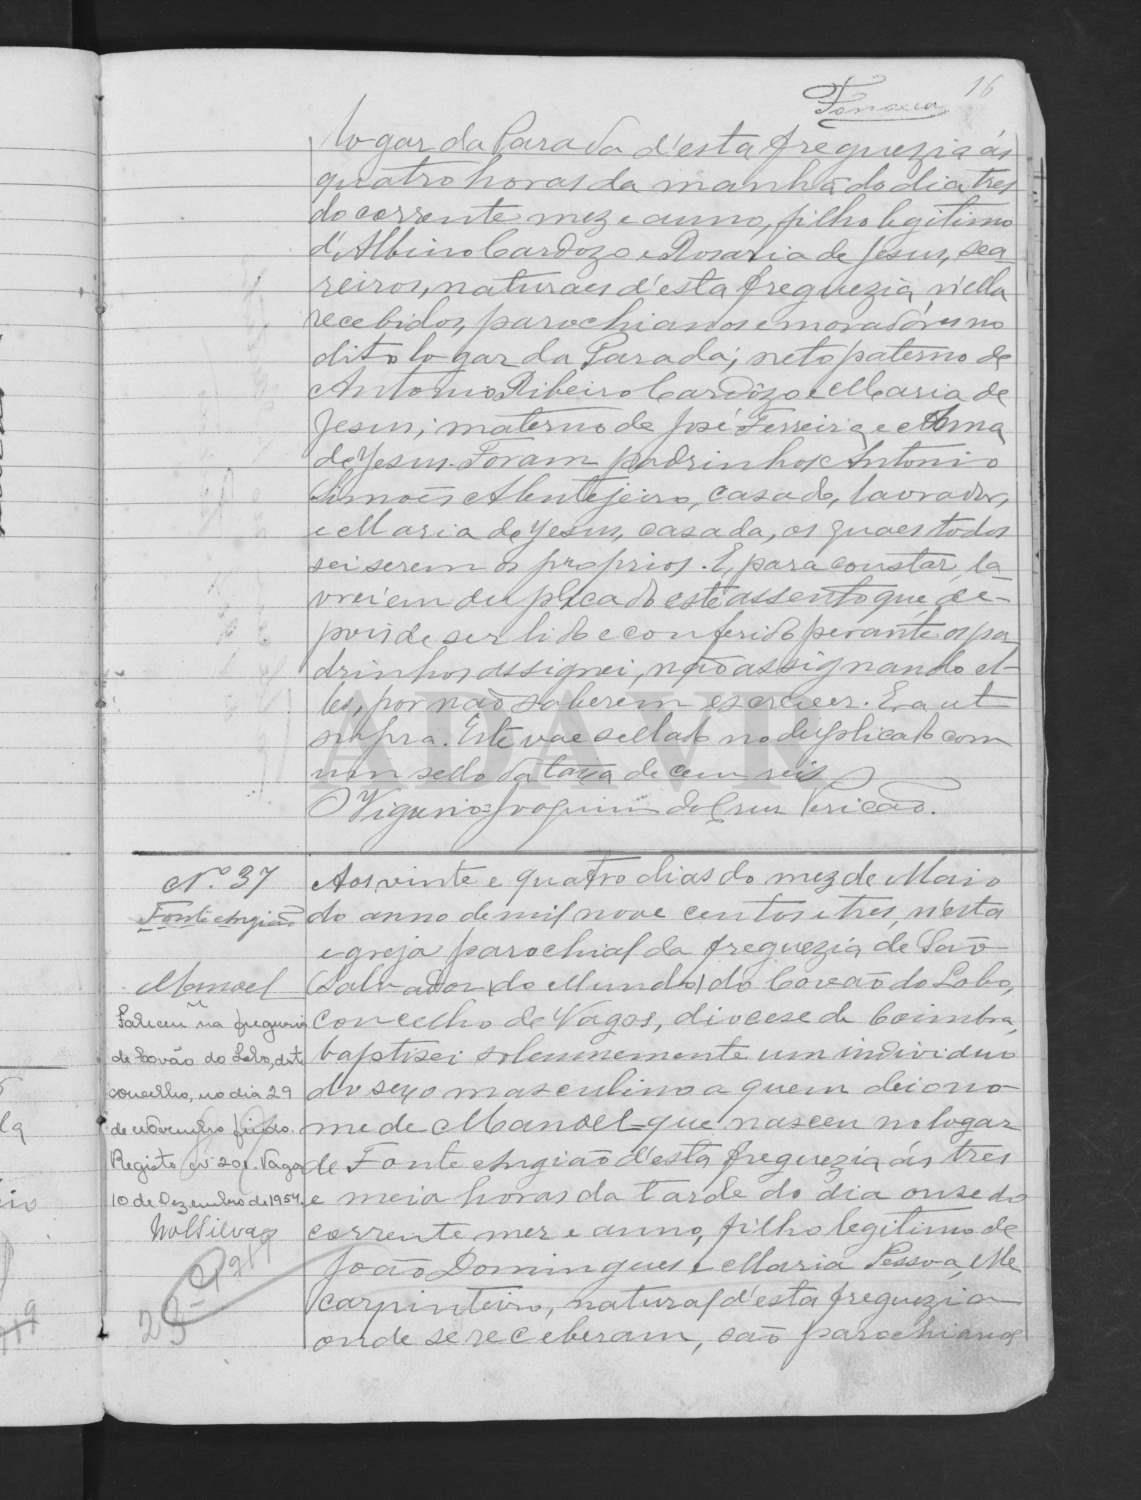 16
Fonseca
logar da Parada d'esta freguezia ás
quatro horas da manhã do dia tres
do corrente mez e anno, filho legitimo
d'Albino Cardozo e Rosaria de Jesus, sea
reiros, naturaes d'esta freguezia, n'ella
recebidos, parochianos e moradôres no
dito logar da Parada; neto paterno de
Antonio Ribeiro Cardôzo e Maria de
Jesus; materno de José Ferreira e Anna
de Jesus. Foram padrinhos Antonio
Simões Alentejeiro, casado, lavrador,
e Maria de Jesus, casada, os quaes todos
sei serem os proprios. E, para constar, la
vrei em duplicado este assento, que, de-
pois de ser lido e conferido perante os pa
drinhos assignei, não assignando el-
les, por não saberem escrever. Era ut
supra. Este vae sellado no duplicado com
um sello da taxa de cem reis
O Vigario = Joaquim da Cruz Pericão.
ADAVR
Nº 37
Fonte Angião
Manoel
Faleceu na freguesia
de Covão do Lobo, deste
concelho, no dia 29
de Novembro findo.
Registo nº 201. Vagos
10 de Dezembro de 1954.
Aos vinte e quatro dias do mez de Maio
do anno de mil nove centos e tres, n'esta
egreja parochial da freguezia de São
Salvador (do Mundo) do Covão do Lobo,
concelho de Vagos, diocese de Coimbra,
baptisei solemnemente um individuo
do sexo masculino a quem dei o no-
me de Manoel = que nasceu no logar
de Fonte Angião d'esta freguezia ás tres
e meia horas da tarde do dia onze do
corrente mez e anno, filho legitimo de
João Domingues e Maria Pessoa, elle
carpinteiro, natural d'esta freguezia
onde se receberam, são parochianos